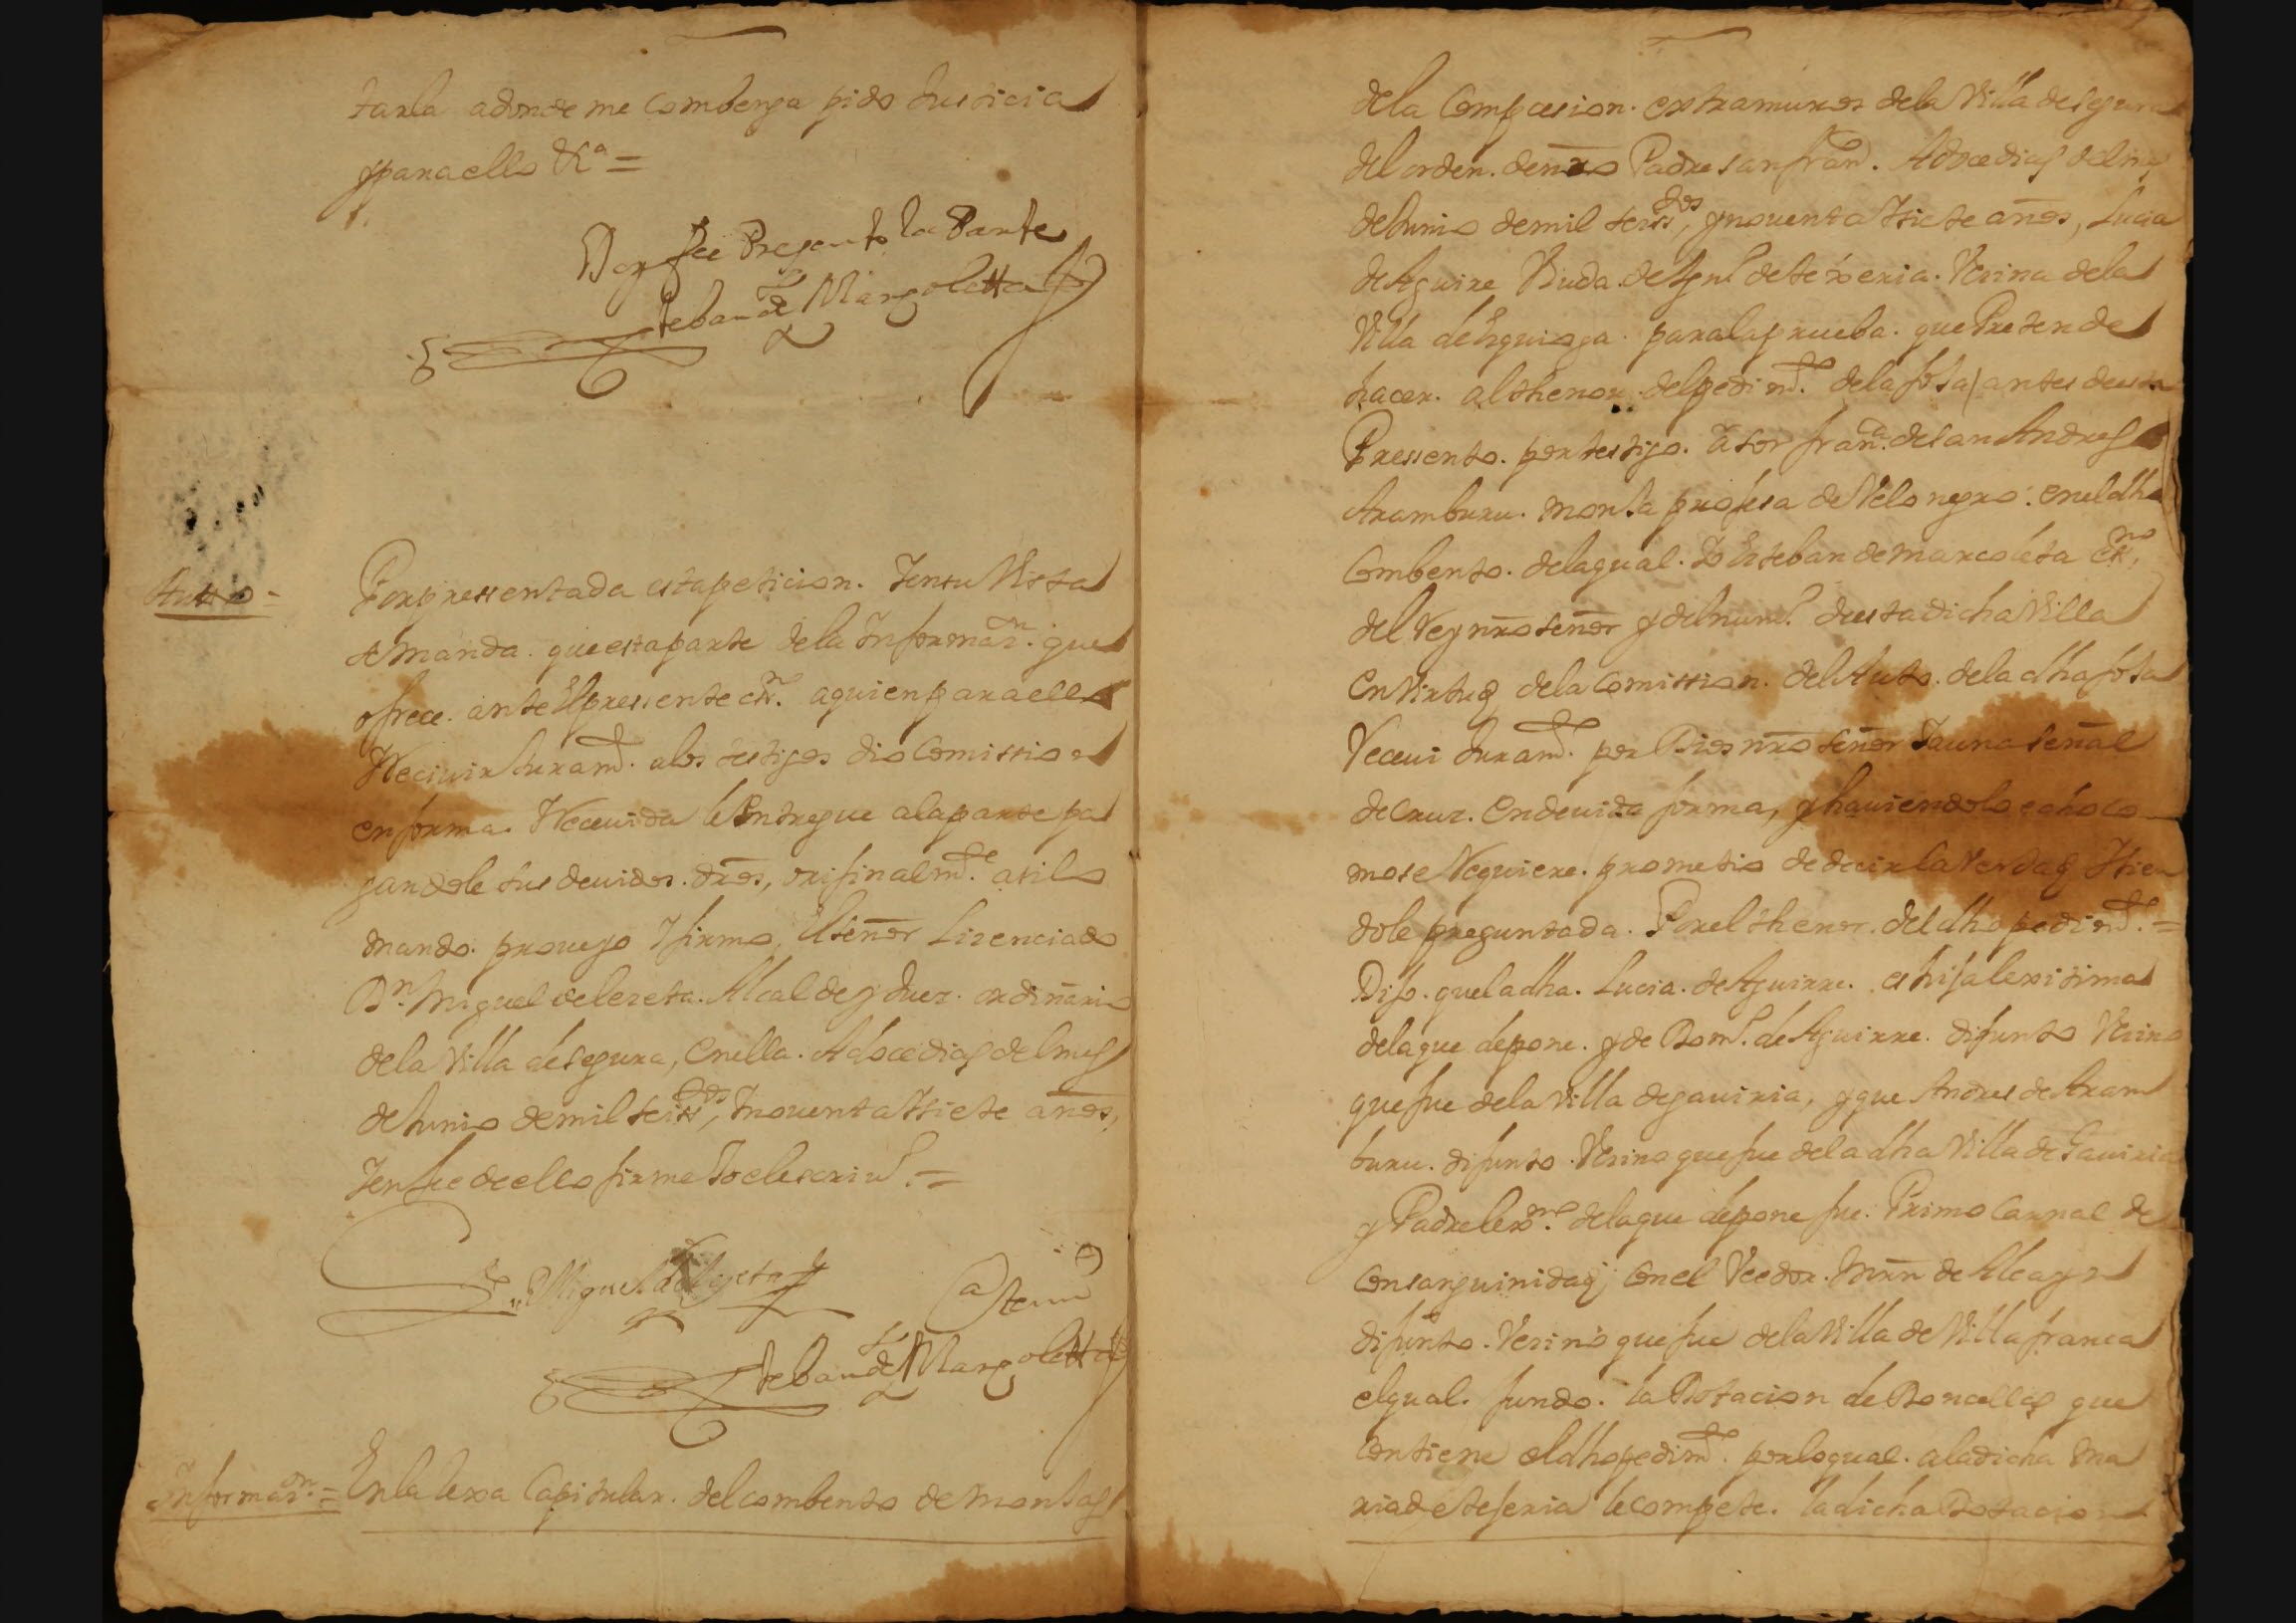 tarla adonde me combenga pido Justicia
y para ello &ª =
Doy fee Presento la Parte
Esteban de Marzoletta
Autto =
Por pressentada esta peticion. Y en su Vista
se manda. que esta parte de la Informazn. que
ofrece. ante el pressente essno. a quien para ello
Y Recivir Juramto. a los testigos dio Comission
en forma. Y Recevida le entregue a la parte pa
gandole sus devidos. dros, orijinalmte. asi lo
mando. proveyo Y firmo, el señor Lizenciado
Dn. Miguel de Lezeta. Alcalde y Juez. ordinario
de la Villa de segura, en ella. A doce dias del mes
de Junio de mil seissdos, Y noventa Y siete años,
Y en fee de ello firme Yo el escrivo. =
Miguel de Lezeta
Ante mi
Esteban de Marzoletta
Informazon. = En la Rexa Capitular. del combento de monjas
de la Compcesion. extramuros de la Villa de segura
del orden. de nro Padre san frano. A doce dias del mes
de Junio de mil seissdos, y noventa Y siete años, Lucia
de Aguirre Viuda. de Ygno. de texeria. Vezina de la
Villa de Ezquioga. para la prueba. que Pretende
hacer. al thenor. del pedimto. de la foja antes de esta
Pressento. por testigo. a sor franca. de san Andres
Aramburu. monja profesa de Velo negro. en el dho
Combento. de la qual. Yo Esteban de Marcoleta essno,
del Rey nro señor y del numo. de esta dicha Villa
en Virtud de la Comission. del Auto. de la dha foja
Recevi Juramto. por Dios nro señor Y a una señal
de Cruz. en devida forma, y haviendolo echo co
mo se Requiere. prometio de decir la Verdad Y sien
dole preguntada. Por el thenor. del dho pedimto. =
Dijo. que la dha. Lucia. de Aguirre. es hija lexitima
de la que depone. y de Domo. de Aguirre. difunto Vezino
que fue de la Villa de gaviria, y que Andres de Aram
buru. difunto. Vezino que fue de la dha Villa de Gaviria
y Padre lexmo. de la que depone fue. Primo Carnal de
consanguinidad con el Veedor. Mrn de Alcayn
difunto. Vezino que fue de la Villa de Villafranca
el qual. fundo. la Dotacion de Doncellas que
contiene el dho pedimto. por lo qual. a la dicha Ma
ria de tejeria le compete. la dicha Dotacion